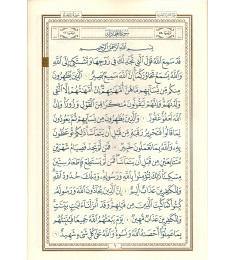 سُورَةُ المُجَادلَةِ
بِسْمِ ٱللَّهِ ٱلرَّحْمَٰنِ ٱلرَّحِيمِ
قَدْ سَمِعَ ٱللَّهُ قَوْلَ ٱلَّتِي تُجَٰدِلُكَ فِي زَوْجِهَا وَتَشْتَكِيٓ إِلَى ٱللَّهِ
وَٱللَّهُ يَسْمَعُ تَحَاوُرَكُمَآ إِنَّ ٱللَّهَ سَمِيعٌۢ بَصِيرٌ ١ ٱلَّذِينَ يُظَٰهِرُونَ
مِنكُم مِّن نِّسَآئِهِم مَّا هُنَّ أُمَّهَٰتِهِمْ إِنْ أُمَّهَٰتُهُمْ إِلَّا ٱلَّٰٓـِٔي
وَلَدْنَهُمْ وَإِنَّهُمْ لَيَقُولُونَ مُنكَرًا مِّنَ ٱلْقَوْلِ وَزُورًا وَإِنَّ ٱللَّهَ لَعَفُوٌّ
غَفُورٌ ٢ وَٱلَّذِينَ يُظَٰهِرُونَ مِن نِّسَآئِهِمْ ثُمَّ يَعُودُونَ
لِمَا قَالُوا۟ فَتَحْرِيرُ رَقَبَةٍ مِّن قَبْلِ أَن يَتَمَآسَّا ذَٰلِكُمْ تُوعَظُونَ
بِهِۦ وَٱللَّهُ بِمَا تَعْمَلُونَ خَبِيرٌ ٣ فَمَن لَّمْ يَجِدْ فَصِيَامُ شَهْرَيْنِ
مُتَتَابِعَيْنِ مِن قَبْلِ أَن يَتَمَآسَّا فَمَن لَّمْ يَسْتَطِعْ فَإِطْعَامُ سِتِّينَ
مِسْكِينًا ذَٰلِكَ لِتُؤْمِنُوا۟ بِٱللَّهِ وَرَسُولِهِۦ وَتِلْكَ حُدُودُ ٱللَّهِ
وَلِلْكَٰفِرِينَ عَذَابٌ أَلِيمٌ ٤ إِنَّ ٱلَّذِينَ يُحَآدُّونَ ٱللَّهَ وَرَسُولَهُۥ
كُبِتُوا۟ كَمَا كُبِتَ ٱلَّذِينَ مِن قَبْلِهِمْ وَقَدْ أَنزَلْنَآ ءَايَٰتٍۭ بَيِّنَٰتٍ
وَلِلْكَٰفِرِينَ عَذَابٌ مُّهِينٌ ٥ يَوْمَ يَبْعَثُهُمُ ٱللَّهُ جَمِيعًا فَيُنَبِّئُهُم
بِمَا عَمِلُوٓا۟ أَحْصَىٰهُ ٱللَّهُ وَنَسُوهُ وَٱللَّهُ عَلَىٰ كُلِّ شَيْءٍ شَهِيدٌ ٦